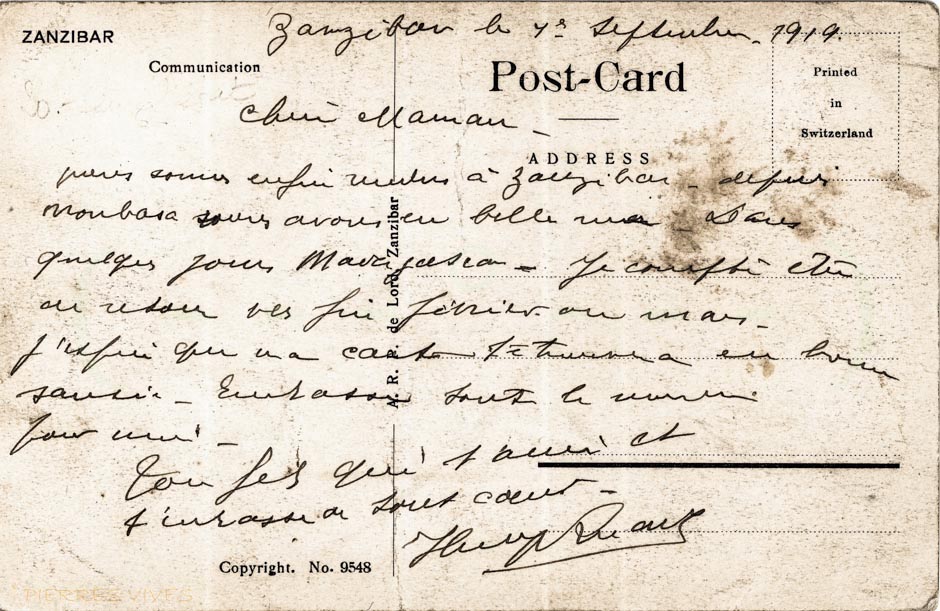 ZANZIBAR
Zanzibar le 7 Septembre 1919.
Communication
Post-Card
Printed
in
Switzerland
Chère Maman
ADDRESS
nous sommes enfin rendus à Zanzibar - depuis
Monbasa nous avons eu belle mer - Dans
quelques jours Madagascar - Je compte être
de retour vers fin février ou mars -
J'espère que ma carte te trouvera en bonne
santé - Embrasse tout le monde
pour moi -
Ton fils qui t'aime et
t'embrasse de tout cœur -
Henry
A. R. P. de Lord, Zanzibar
Copyright. No. 9548
PIERRES VIVES